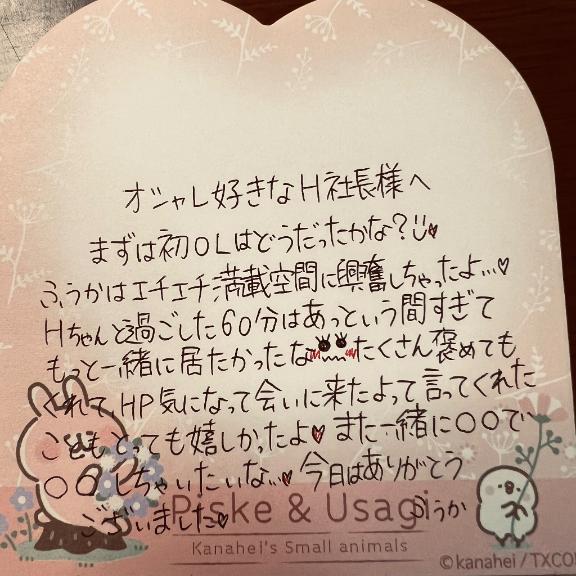 オシャレ好きなH社長様へ
まずは初OLはどうだったかな?
ふうかはエチエチ満載空間に興奮しちゃったよ…♡
Hちゃんと過ごした60分はあっという間すぎて
もっと一緒に居たかったな たくさん褒めても
くれて、HP気になって会いに来たよって言ってくれた
こともとっても嬉しかったよ♥ また一緒に〇〇で
〇〇しちゃいたいな…♥ 今日はありがとう
ございました♥ ふうか
Piske & Usagi
Kanahei's Small animals
©kanahei / TXCO